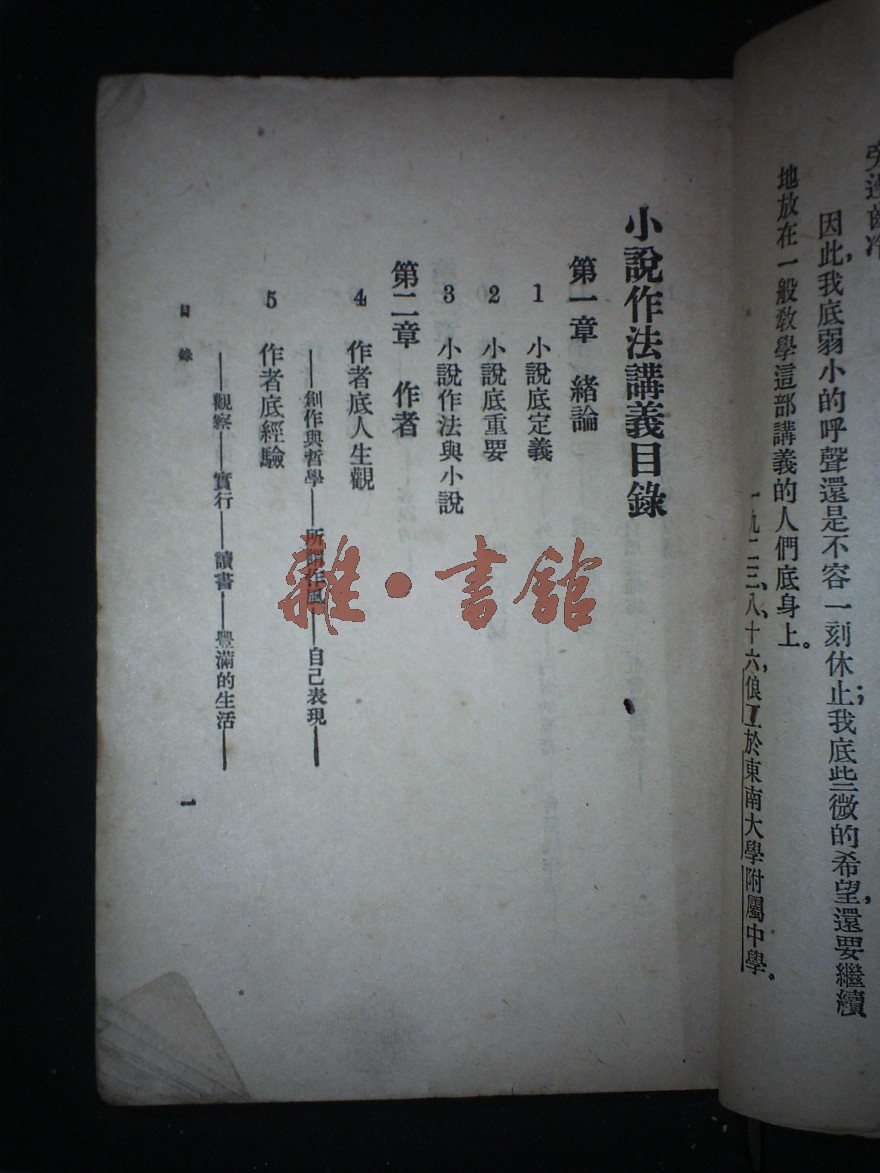 因此,我底弱小的呼聲還是不容一刻休止;我底些微的希望,還要繼續
地放在一般敎學這部講義的人們底身上。
一九二三、八、十六,俍工於東南大學附屬中學。
小說作法講義目錄
第一章 緒論
1 小說底定義
2 小說底重要
3 小說作法與小說
第二章 作者
4 作者底人生觀
——創作與哲學——所謂作風——自己表現——
5 作者底經驗
——觀察——實行——讀書——豐滿的生活——
目錄
一
雜·書館